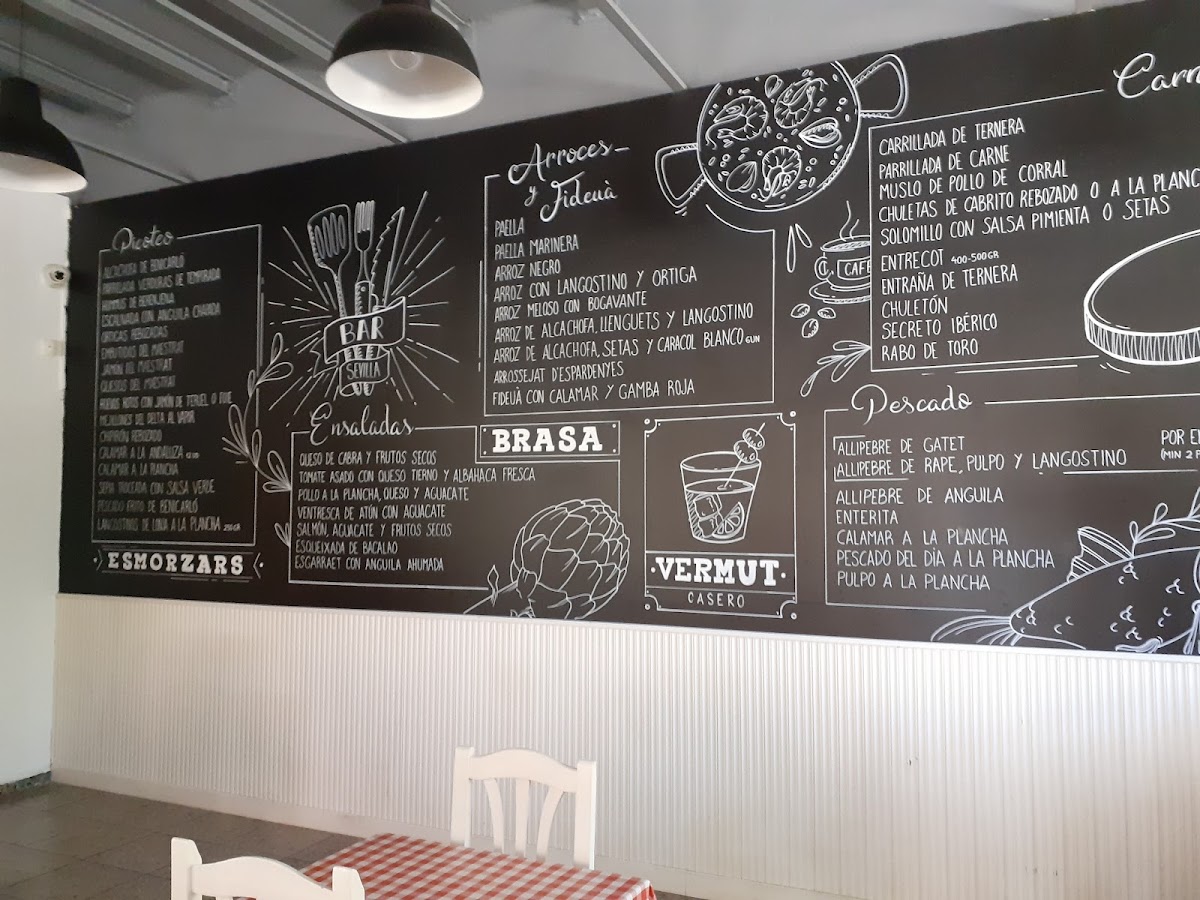 Picoteo
ALCACHOFA DE BENICARLÓ
PARRILLADA VERDURAS DE TEMPORADA
HUMMUS DE BERENJENA
ESCALIVADA CON ANGUILA
ORTIGAS REBOZADAS
EMBUTIDOS DEL MAESTRAT
JAMÓN DEL MAESTRAT
QUESOS DEL MAESTRAT
HUEVOS ROTOS CON JAMÓN DE TERUEL O FOIE
MEJILLONES DEL DELTA AL VAPOR
CHIPIRÓN REBOZADO
CALAMAR A LA ANDALUZA
CALAMAR A LA PLANCHA
SEPIA TROCEADA CON SALSA VERDE
PESCADO FRITO DE BENICARLÓ
LANGOSTINOS DE LONJA A LA PLANCHA 250GR
ESMORZARS
BAR
SEVILLA
Ensaladas
QUESO DE CABRA Y FRUTOS SECOS
TOMATE ASADO CON QUESO TIERNO Y ALBAHACA FRESCA
POLLO A LA PLANCHA, QUESO Y AGUACATE
VENTRESCA DE ATÚN CON AGUACATE
SALMÓN, AGUACATE Y FRUTOS SECOS
ESQUEIXADA DE BACALAO
ESGARRAET CON ANGUILA AHUMADA
BRASA
Arroces
y Fideuà
PAELLA
PAELLA MARINERA
ARROZ NEGRO
ARROZ CON LANGOSTINO Y ORTIGA
ARROZ MELOSO CON BOGAVANTE
ARROZ DE ALCACHOFA, LLENGUETS Y LANGOSTINO
ARROZ DE ALCACHOFA, SETAS Y CARACOL BLANCO GUN
ARROSSEJAT D'ESPARDENYES
FIDEUÀ CON CALAMAR Y GAMBA ROJA
VERMUT
CASERO
CAFÉ
Carn
CARRILLADA DE TERNERA
PARRILLADA DE CARNE
MUSLO DE POLLO DE CORRAL
CHULETAS DE CABRITO REBOZADO O A LA PLANC
SOLOMILLO CON SALSA PIMIENTA O SETAS
ENTRECOT 400-500GR
ENTRAÑA DE TERNERA
CHULETÓN
SECRETO IBÉRICO
RABO DE TORO
Pescado
ALLIPEBRE DE GATET
ALLIPEBRE DE RAPE, PULPO Y LANGOSTINO
POR EN
(MIN 2 P
ALLIPEBRE DE ANGUILA
ENTERITA
CALAMAR A LA PLANCHA
PESCADO DEL DÍA A LA PLANCHA
PULPO A LA PLANCHA